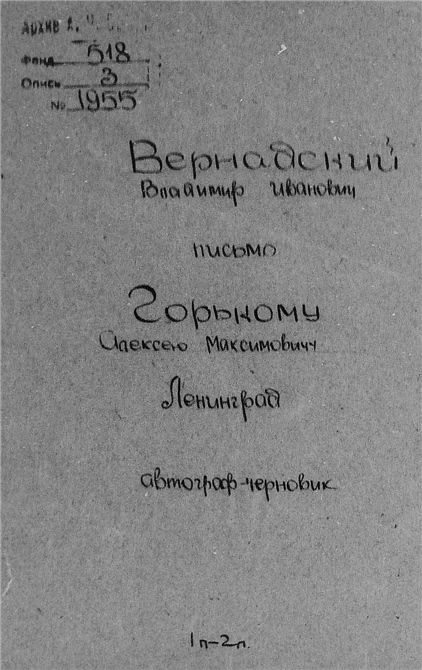 Архив А.
Фонд 518
Опись 3
№ 1955
Вернадский
Владимир Иванович
письмо
Горькому
Алексею Максимовичу
Ленинград
автограф-черновик
1п-2п.